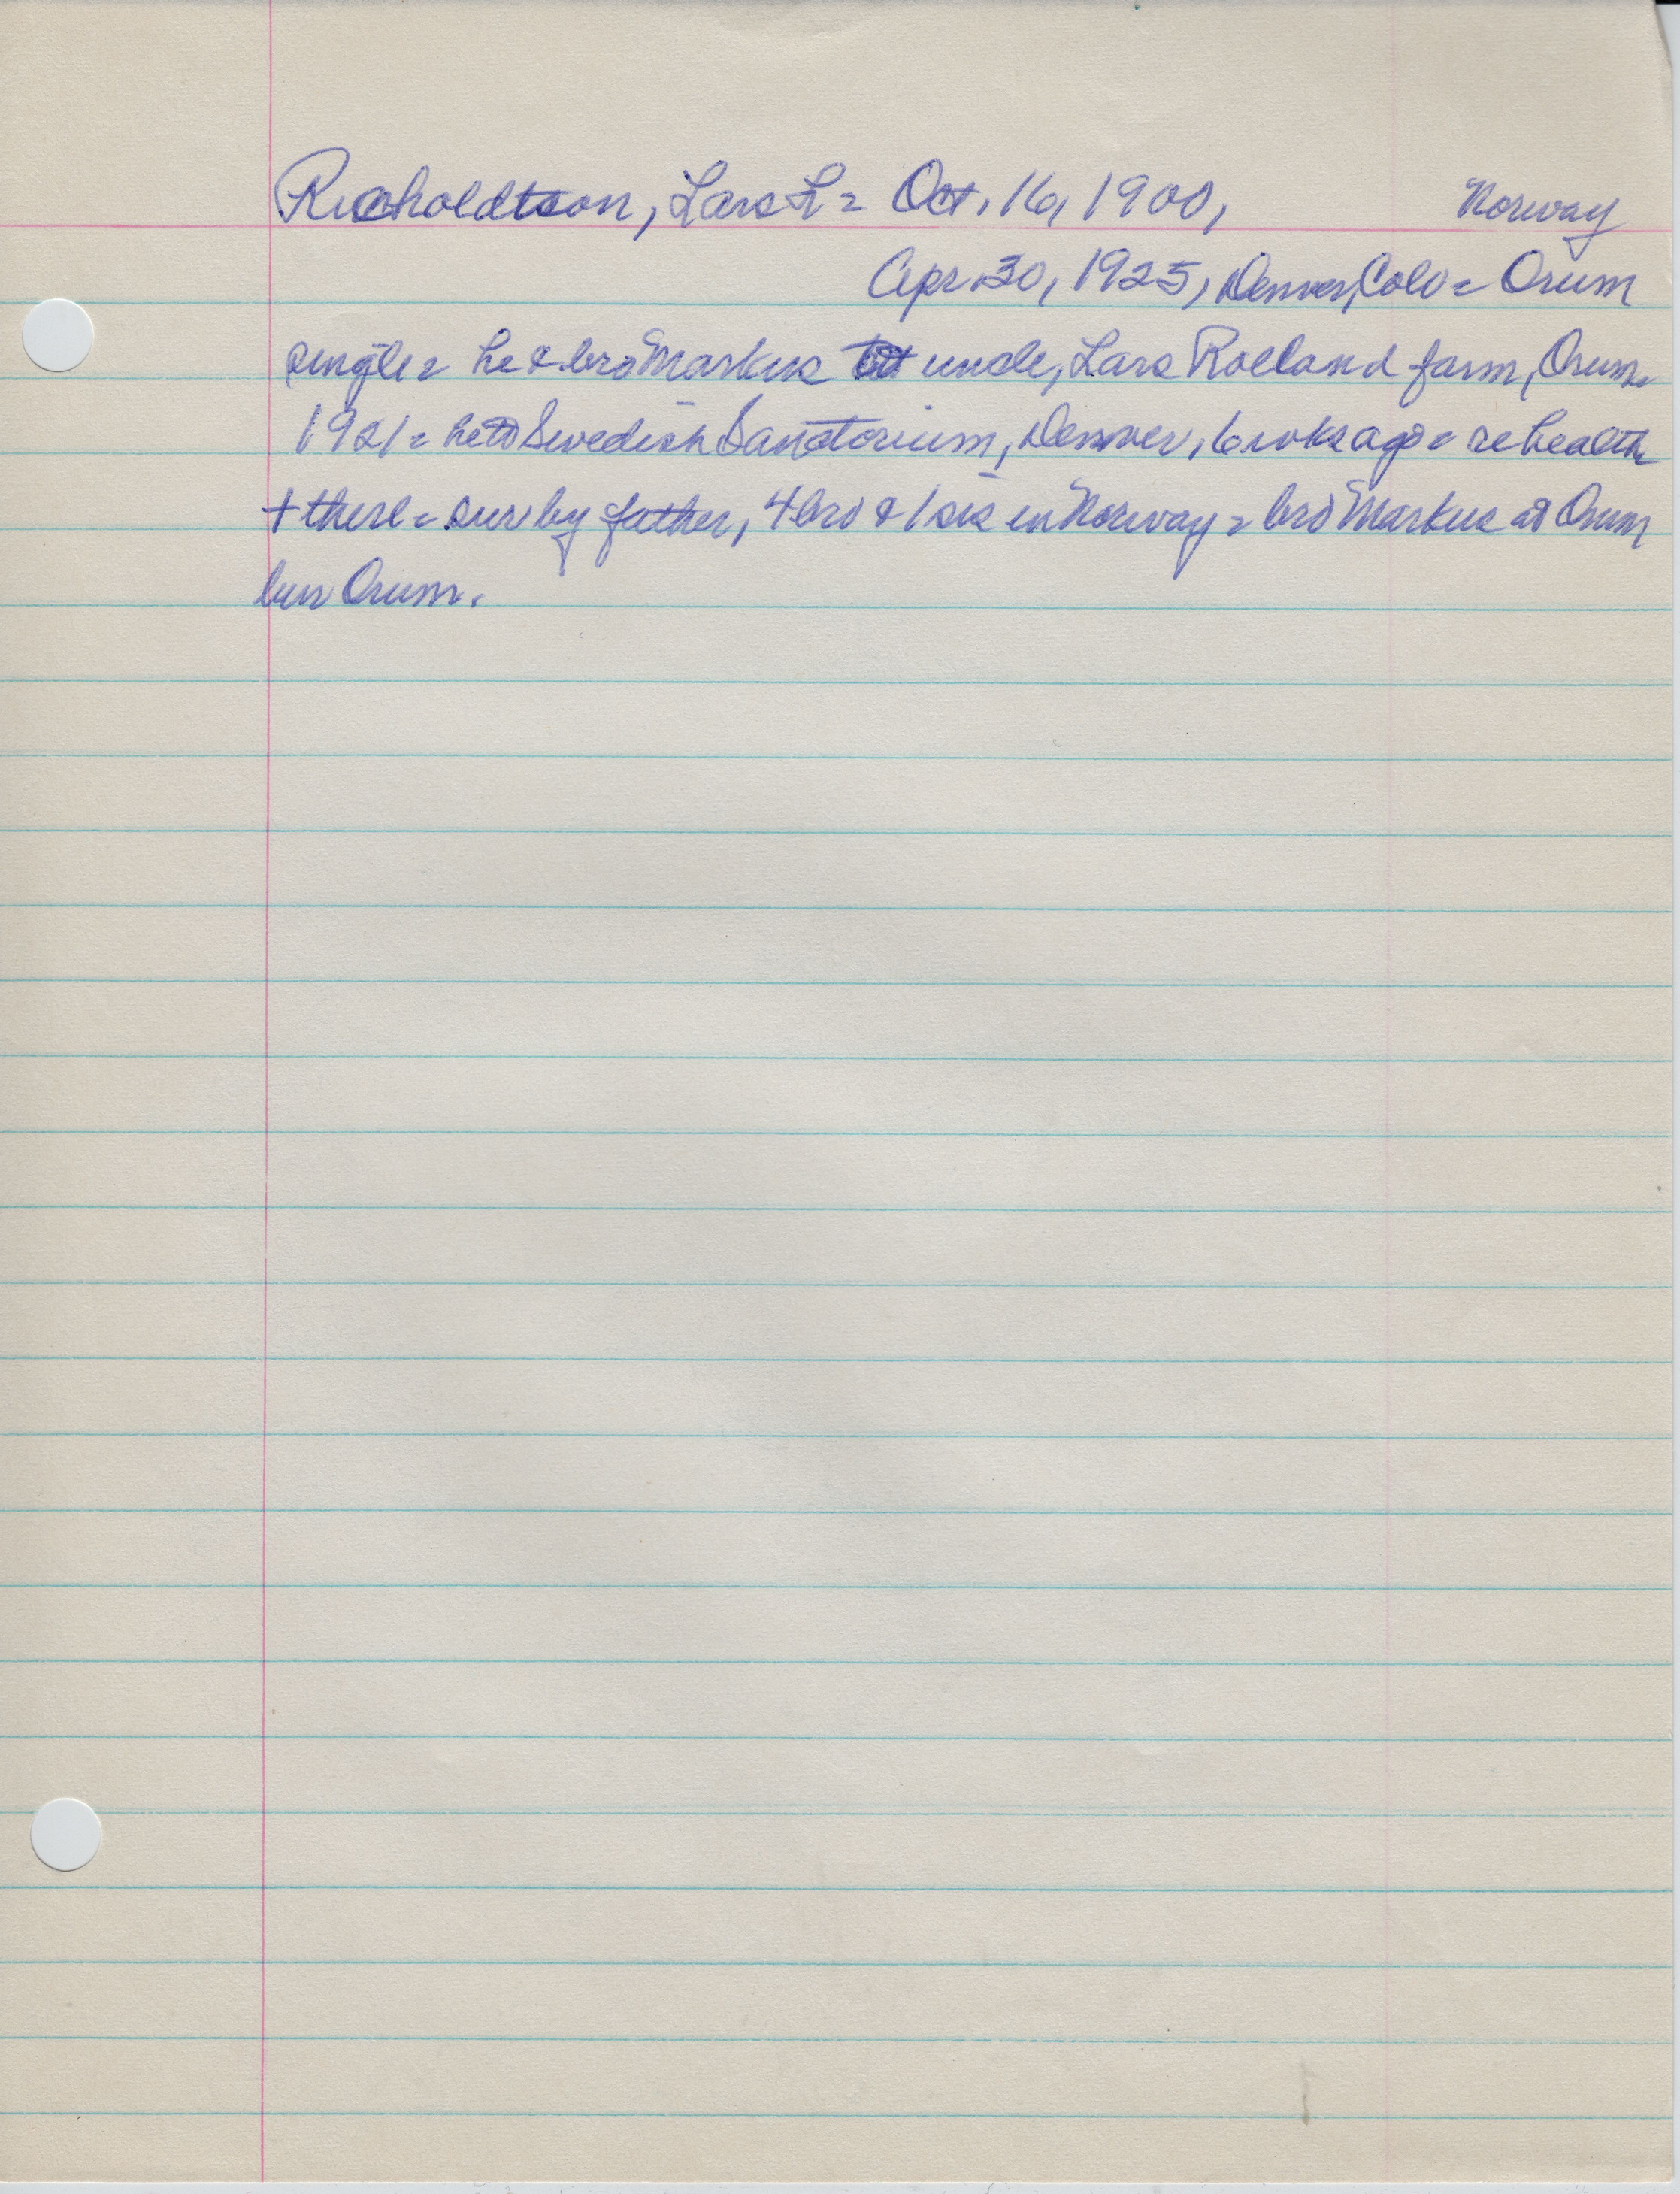 Richoldtson, Lars L = Oct. 16, 1900, Norway
Apr. 30, 1925, Denver, Colo = Orum
single = he & bro Markus to uncle, Lars Roland farm, Orum
1921 = he to Swedish Sanatorium, Denver, 6 wks ago = re health
+ there = sur by father, 4 bro & 1 sis in Norway = bro Markus at Orum
bur Orum.